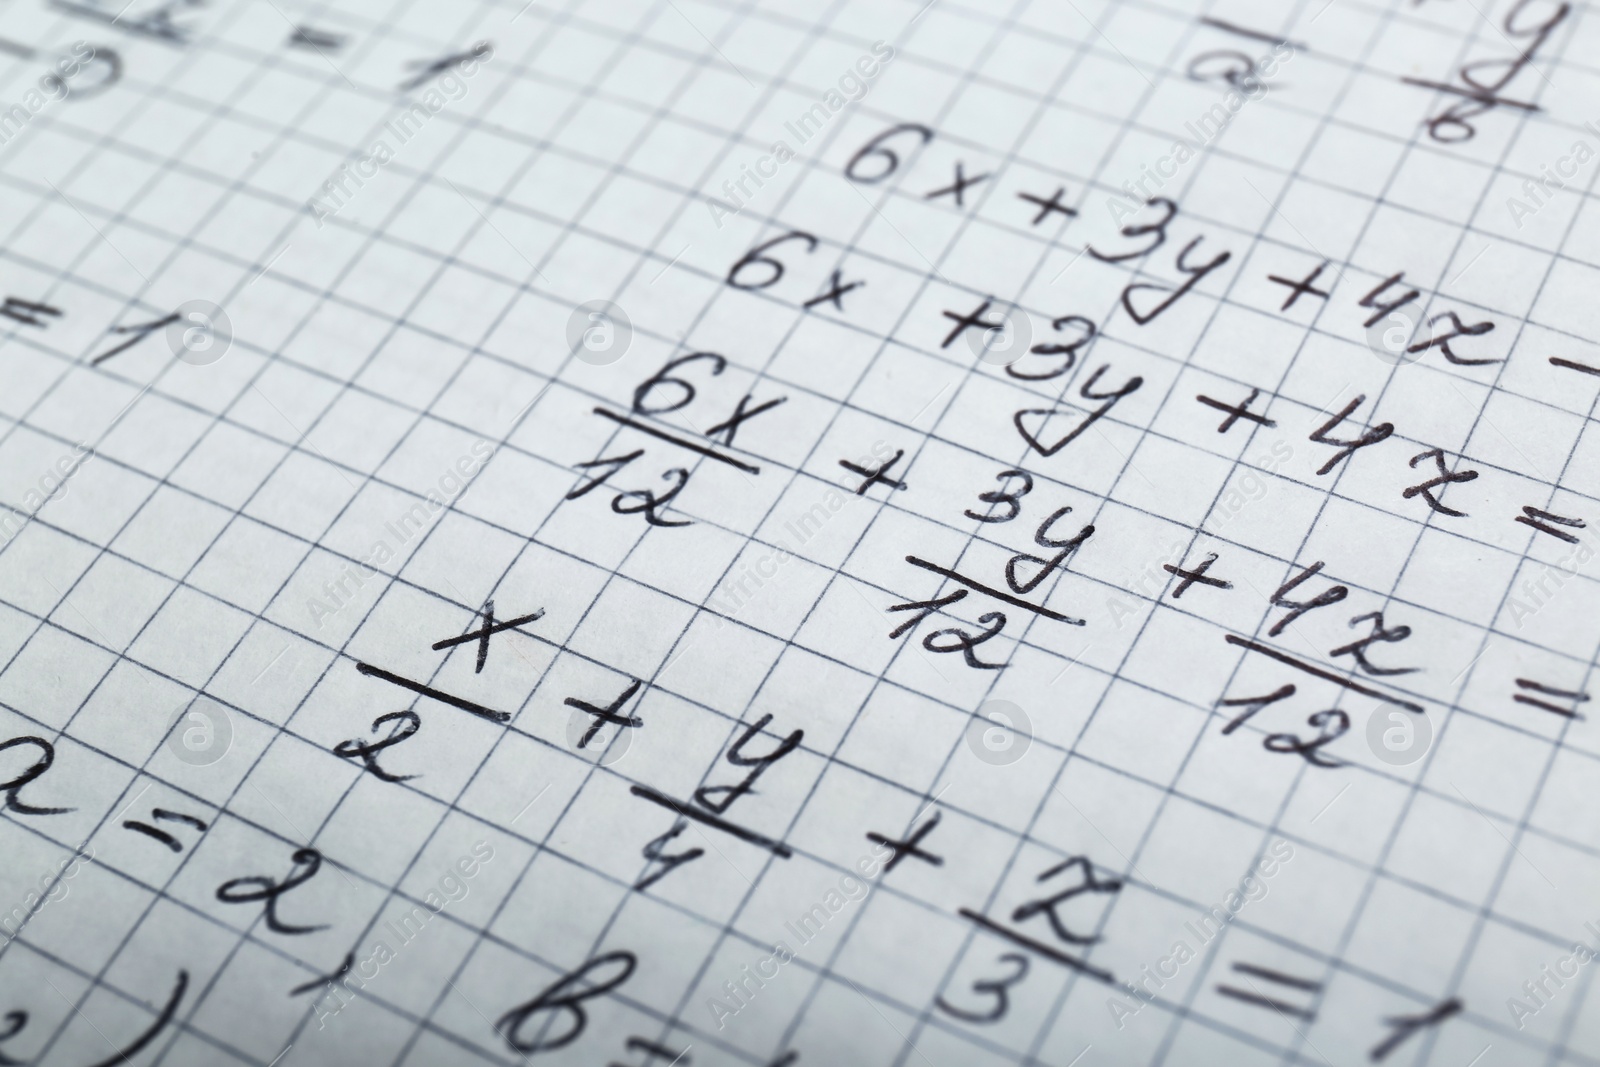 = 1
a y/b
6x + 3y + 4z -
6x + 3y + 4z =
= 1
6x/12 + 3y/12 + 4z/12 =
x/2 + y/4 + z/3 = 1
a = 2, b =
)